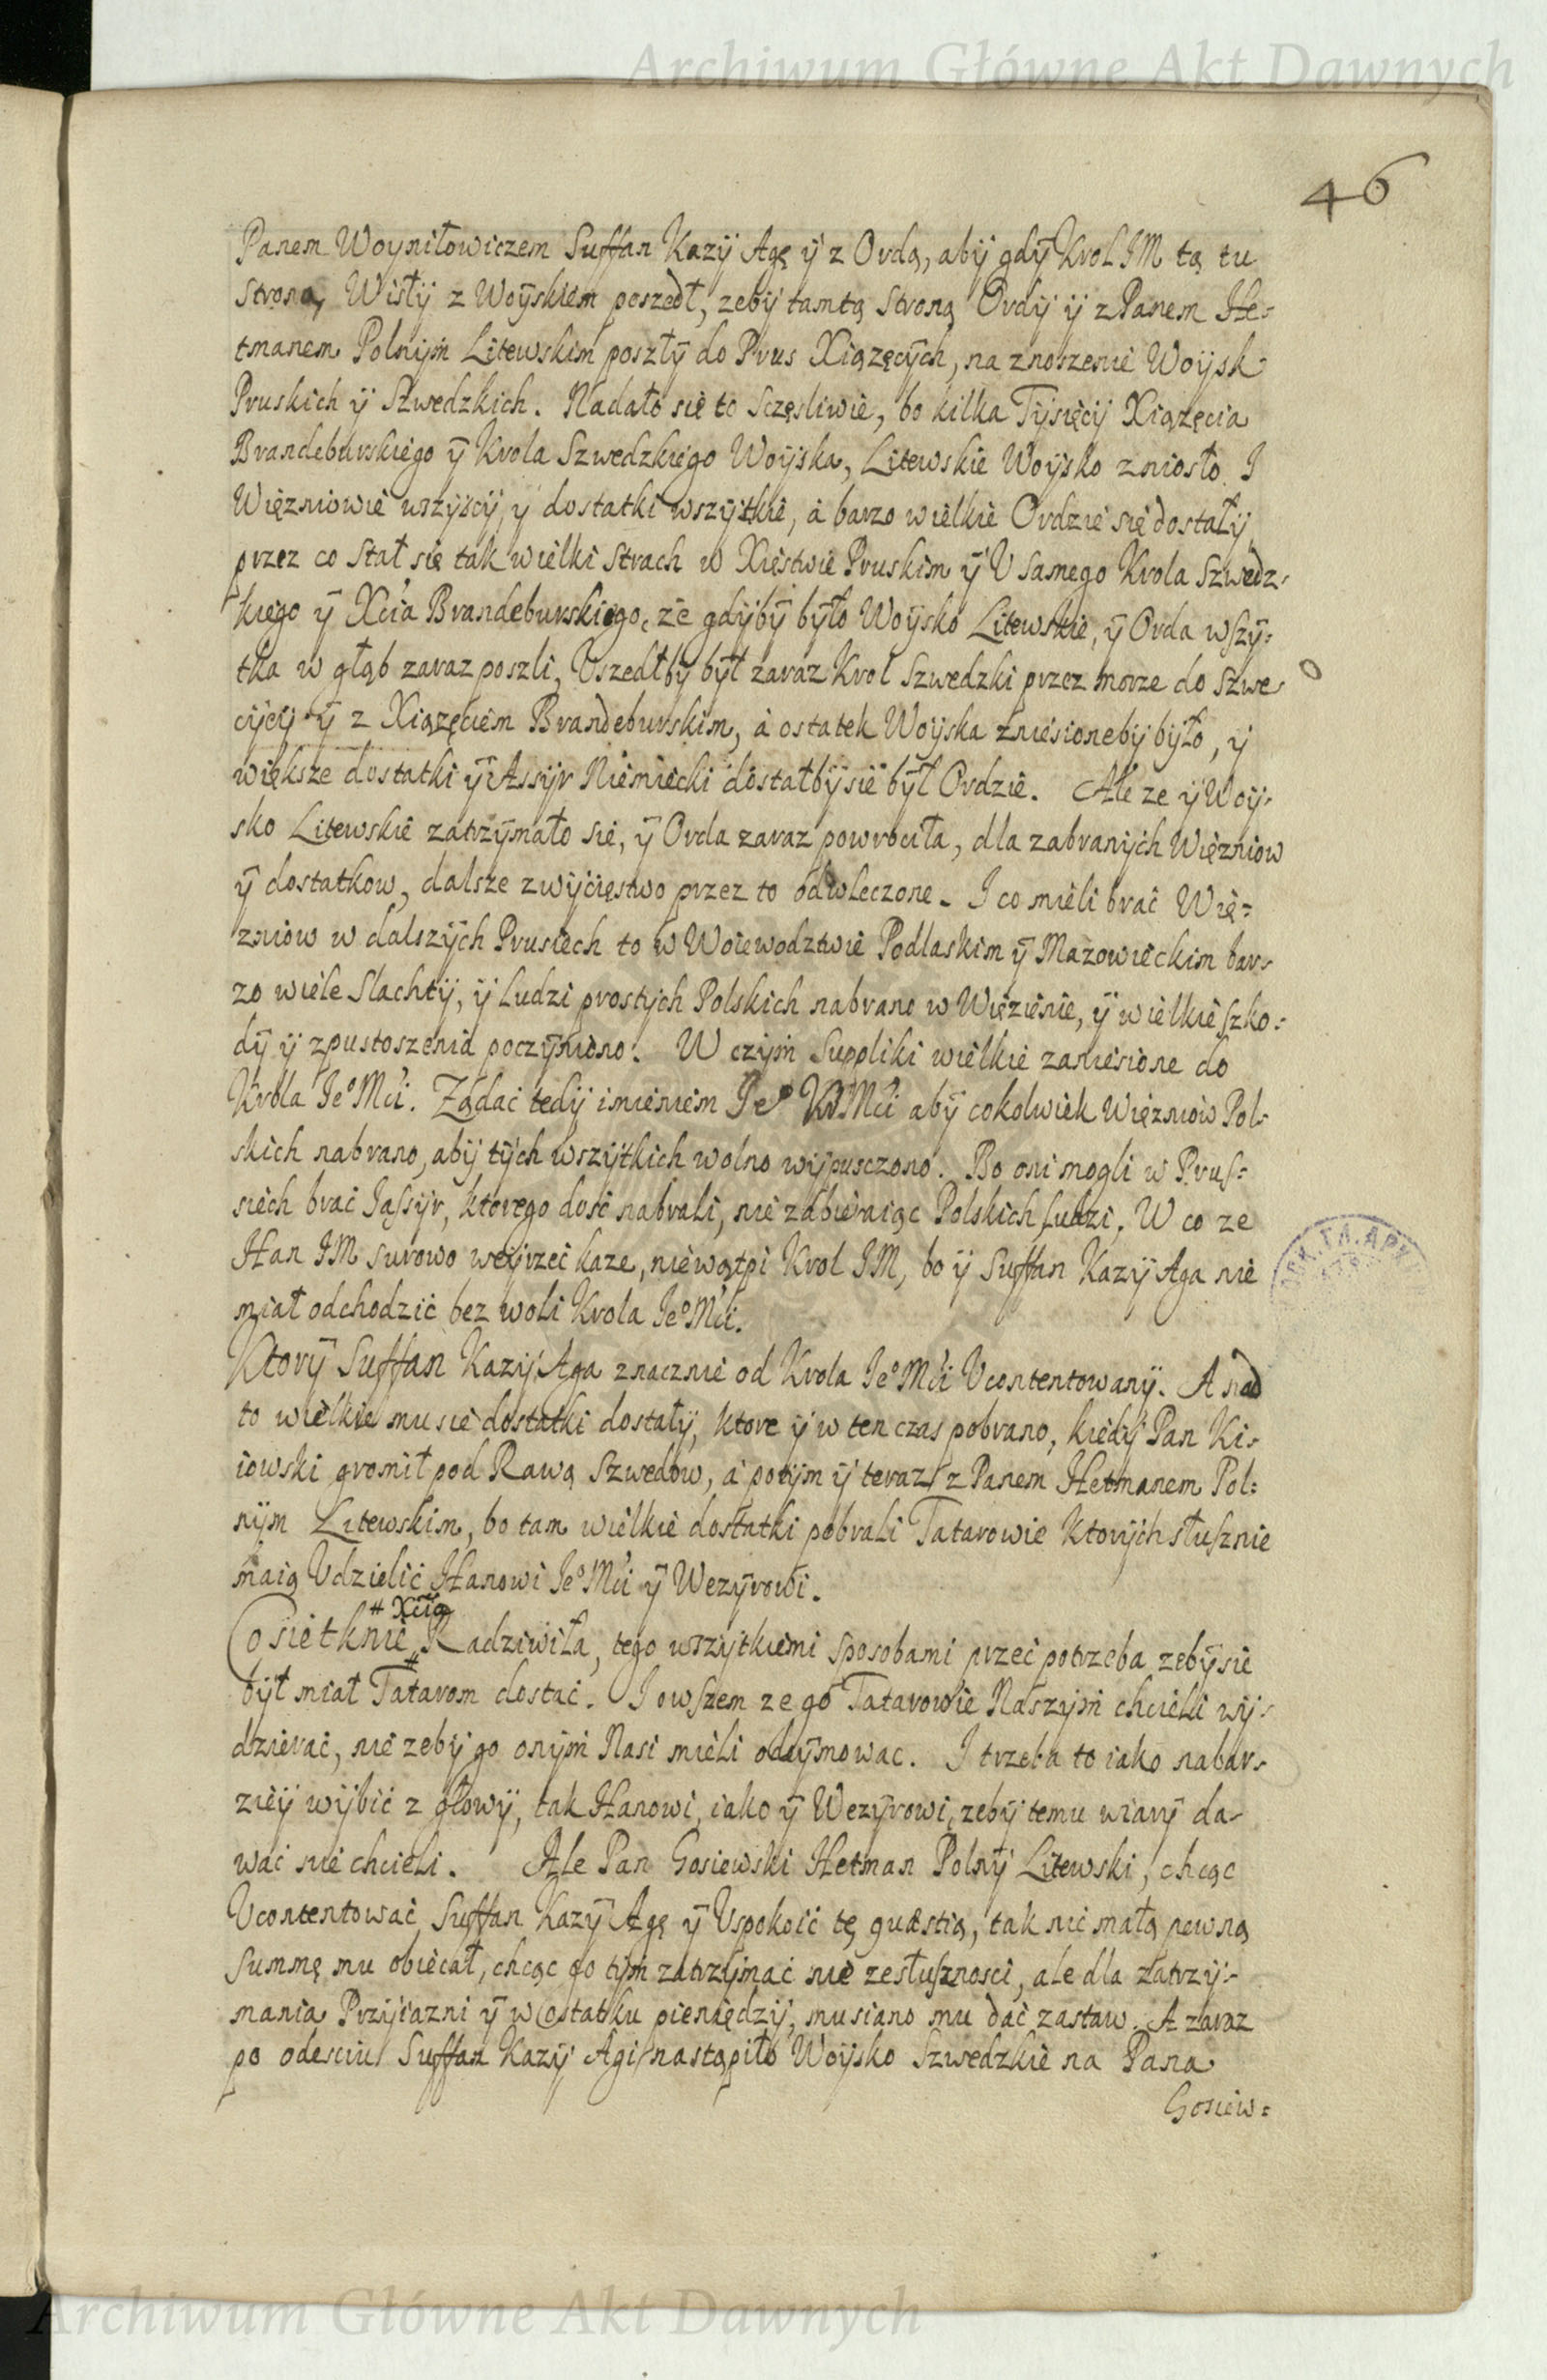 Archiwum Główne Akt Dawnych
46
Panem Woyniłowiczem Suffan Kazÿ Agę ÿ z Ordą, abÿ gdÿ Krol JM tą tu
stroną Wisłÿ z Woÿskiem poszedł, zebÿ tamtą stroną Ordÿ ÿ z Panem He-
tmanem Polnÿm Litewskim poszłÿ do Prus Xiązęcÿch, na znoszenie Woÿsk
Pruskich ÿ Szwedzkich. Nadało się to sczęsliwie, bo kilka Tÿsięcÿ Xiązęcia
Brandeburskiego ÿ Krola Szwedzkiego Woÿska, Litewskie Woÿsko zniosło. I
Więzniowie wszÿscÿ, ÿ dostatki wszÿtkie, à barzo wielkie Ordzie się dostałÿ,
przez co stał się tak wielki strach w Xięstwie Pruskim ÿ V samego Krola Szwedz-
kiego ÿ Xcia Brandeburskiego, ze gdÿbÿ bÿło Woÿsko Litewskie, ÿ Orda wszÿ-
tka w głąb zaraz poszli, Vszedłbÿ bÿł zaraz Krol Szwedzki przez morze do Szwe-
cÿeÿ ÿ z Xiązęciem Brandeburskim, à ostatek Woÿska zniesionebÿ bÿło, ÿ
większe dostatki ÿ Assÿr Niemiecki dostałbÿ sie bÿł Ordzie. Ale ze ÿ Woÿ-
sko Litewskie zatrzÿmało sie, ÿ Orda zaraz powrociła, dla zabranÿch Więzniow
ÿ dostatkow, dalsze zwÿcięstwo przez to odwleczone. I co mieli brać Wię=
zniow w dalszÿch Prusiech to w Woiewodztwie Podlaskim ÿ Mazowieckim bar-
zo wiele Slachtÿ, ÿ ludzi prostÿch Polskich nabrano w Więzienie, ÿ wielkie szko-
dÿ ÿ zpustoszenia poczÿniono. W czÿm Suppliki wielkie zaniesione do
Krola Jeo Mci. Ządać tedÿ imieniem Jeo KMci abÿ cokolwiek Więzniow Pol-
skich nabrano, abÿ tÿch wszÿtkich wolno wÿpusczono. Bo oni mogli w Prus=
siech brać Jassÿr, ktorego dosć nabrali, nie zabieraiąc Polskich ludzi. W co ze
Han JM surowo weÿrzeć kaze, niewątpi Krol JM, bo ÿ Suffan Kazÿ Aga nie
miał odchodzić bez woli Krola Jeo Mci.
Ktorÿ Suffan Kazÿ Aga znacznie od Krola Jeo Mci Vcontentowanÿ. A nad
to wielkie mu sie dostatki dostałÿ, ktore ÿ w ten czas pobrano, kiedÿ Pan Ki-
iowski gromił pod Rawą Szwedow, à potÿm ÿ teraz z Panem Hetmanem Pol=
nÿm Litewskim, bo tam wielkie dostatki pobrali Tatarowie ktorÿch słusznie
maią Vdzielić Hanowi Jeo Mci ÿ Wezÿrowi.
# Xcia
Co sie tknie # Radziwiła, tego wszÿtkiemi sposobami przeć potrzeba zebÿ sie
bÿł miał Tatarom dostać. I owszem ze go Tatarowie Naszÿm chcieli wÿ-
dzierać, nie zebÿ go onÿm Nasi mieli odeÿmowac. I trzeba to iako nabar-
zieÿ wÿbić z głowÿ, tak Hanowi, iako ÿ Wezÿrowi, zebÿ temu wiarÿ da-
wać nie chcieli. Ale Pan Gosiewski Hetman Polnÿ Litewski, chcąc
Vcontentować Suffan Kazÿ Agę ÿ Vspokoić tę quæstią, tak nie małą pewną
summę mu obiecał, chcąc go tÿm zatrzÿmać nie zesłusznosci, ale dla zatrzÿ-
mania Przÿiazni ÿ w ostatku pieniędzÿ, musiano mu dać zastaw. A zaraz
po odesciu Suffan Kazÿ Agi nastąpiło Woÿsko Szwedzkie na Pana
Gosiew=
Archiwum Główne Akt Dawnych